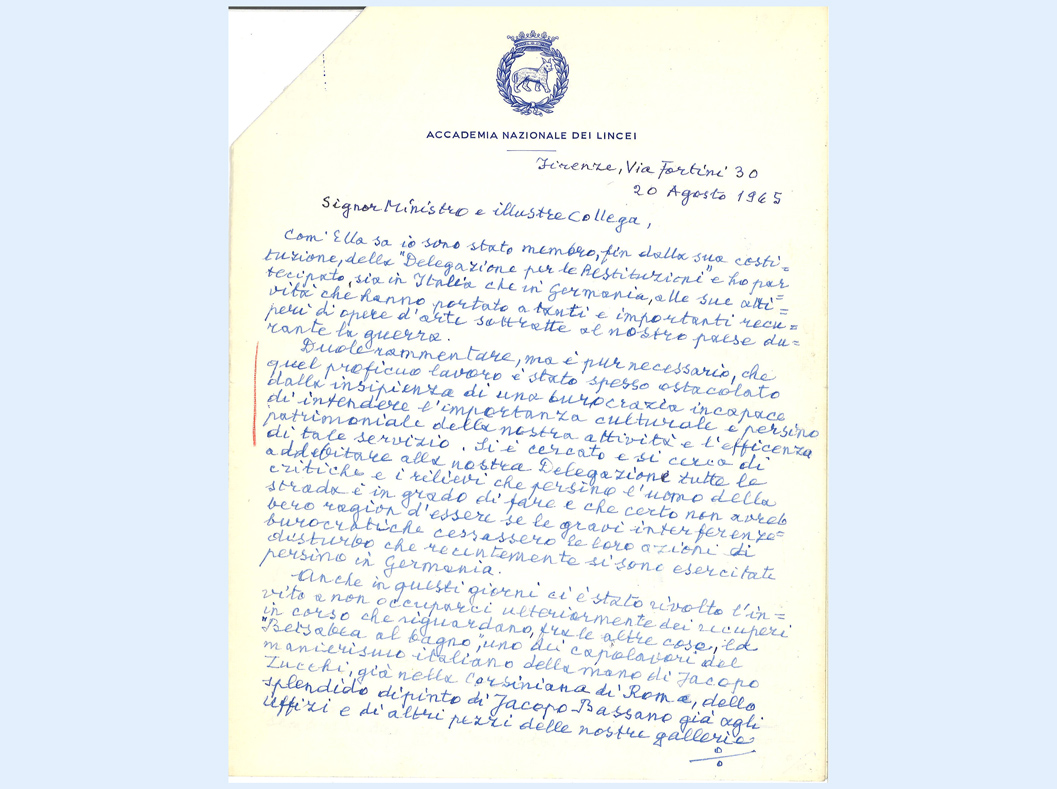 ACCADEMIA NAZIONALE DEI LINCEI
Firenze, Via Fortini 30
20 Agosto 1965
Signor Ministro e illustre Collega,
Com' Ella sa io sono stato membro, fin dalla sua costi=
tuzione, della "Delegazione per le Restituzioni" e ho par
tecipato, sia in Italia che in Germania, alle sue atti=
vità che hanno portato a tanti e importanti recu=
peri di opere d'arte sottratte al nostro paese du=
rante la guerra.
Duole rammentare, ma è pur necessario, che
quel proficuo lavoro è stato spesso ostacolato
dalla insipienza di una burocrazia incapace
di intendere l'importanza culturale e persino
patrimoniale della nostra attività e l'efficenza
di tale servizio. Si è cercato e si cerca di
addebitare alla nostra Delegazione tutte le
critiche e i rilievi che persino l'uomo della
strada è in grado di fare e che certo non avreb
bero ragion d'essere se le gravi interferenze
burocratiche cessassero le loro azioni di
disturbo che recentemente si sono esercitate
persino in Germania.
Anche in questi giorni ci è stato rivolto l'in=
vito a non occuparci ulteriormente dei recuperi
in corso che riguardano, fra le altre cose, la
"Betsabea al bagno", uno dei capolavori del
manierismo italiano della mano di Jacopo
Zucchi, già nella Corsiniana di Roma, dello
splendido dipinto di Jacopo Bassano già agli
Uffizi e di altri pezzi delle nostre gallerie